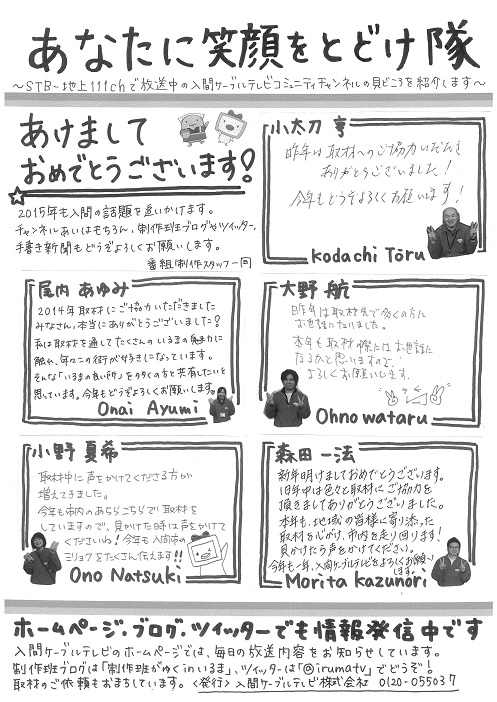 あなたに笑顔をとどけ隊
～STB・地上111chで放送中の入間ケーブルテレビコミュニティチャンネルの見どころを紹介します～
あけまして
おめでとうございます!
2015年も入間の話題を追いかけます。
チャンネルあいはもちろん、制作班ブログやツイッター、
手書き新聞もどうぞよろしくお願いします。
番組制作スタッフ一同
小太刀 亨
昨年は取材へのご協力いただき
ありがとうございました!
今年もどうぞよろしくお願いします!
Kodachi Tōru
尾内 あゆみ
2014年取材にご協力いただきました
みなさん、本当にありがとうございました!
私は取材を通してたくさんのいるまの魅力に
触れ、年々この街が好きになっています。
そんな「いるまの良い所」を多くの方と共有したいと
思っています。今年もどうぞよろしくお願いします。
Onai Ayumi
大野 航
昨年は取材先で多くの方に
お世話になりました。
本年も取材の際にはお世話に
なるかと思いますので、
よろしくお願いします。
Ohno wataru
小野 夏希
取材中に声をかけてくださる方が
増えてきました。
今年も市内のあちらこちらで取材を
していますので、見かけた時は声をかけて
くださいね!今年も入間市の
ミリョクをたくさん伝えます!!
Ono Natsuki
森田 一法
新年明けましておめでとうございます。
旧年中は色々と取材にご協力を
頂きましてありがとうございました。
本年も、地域の皆様に寄り添った
取材を心がけ、市内を走り回ります!
見かけたら声をかけてください。
今年も一年、入間ケーブルテレビをよろしくお願い
します。
Morita kazunori
ホームページ・ブログ・ツイッターでも情報発信中です
入間ケーブルテレビのホームページでは、毎日の放送内容をお知らせしています。
制作班ブログは「制作班がゆくinいるま」、ツイッターは「@irumatv」でどうぞ!
取材のご依頼もおまちしています。<発行>入間ケーブルテレビ株式会社 0120-055037